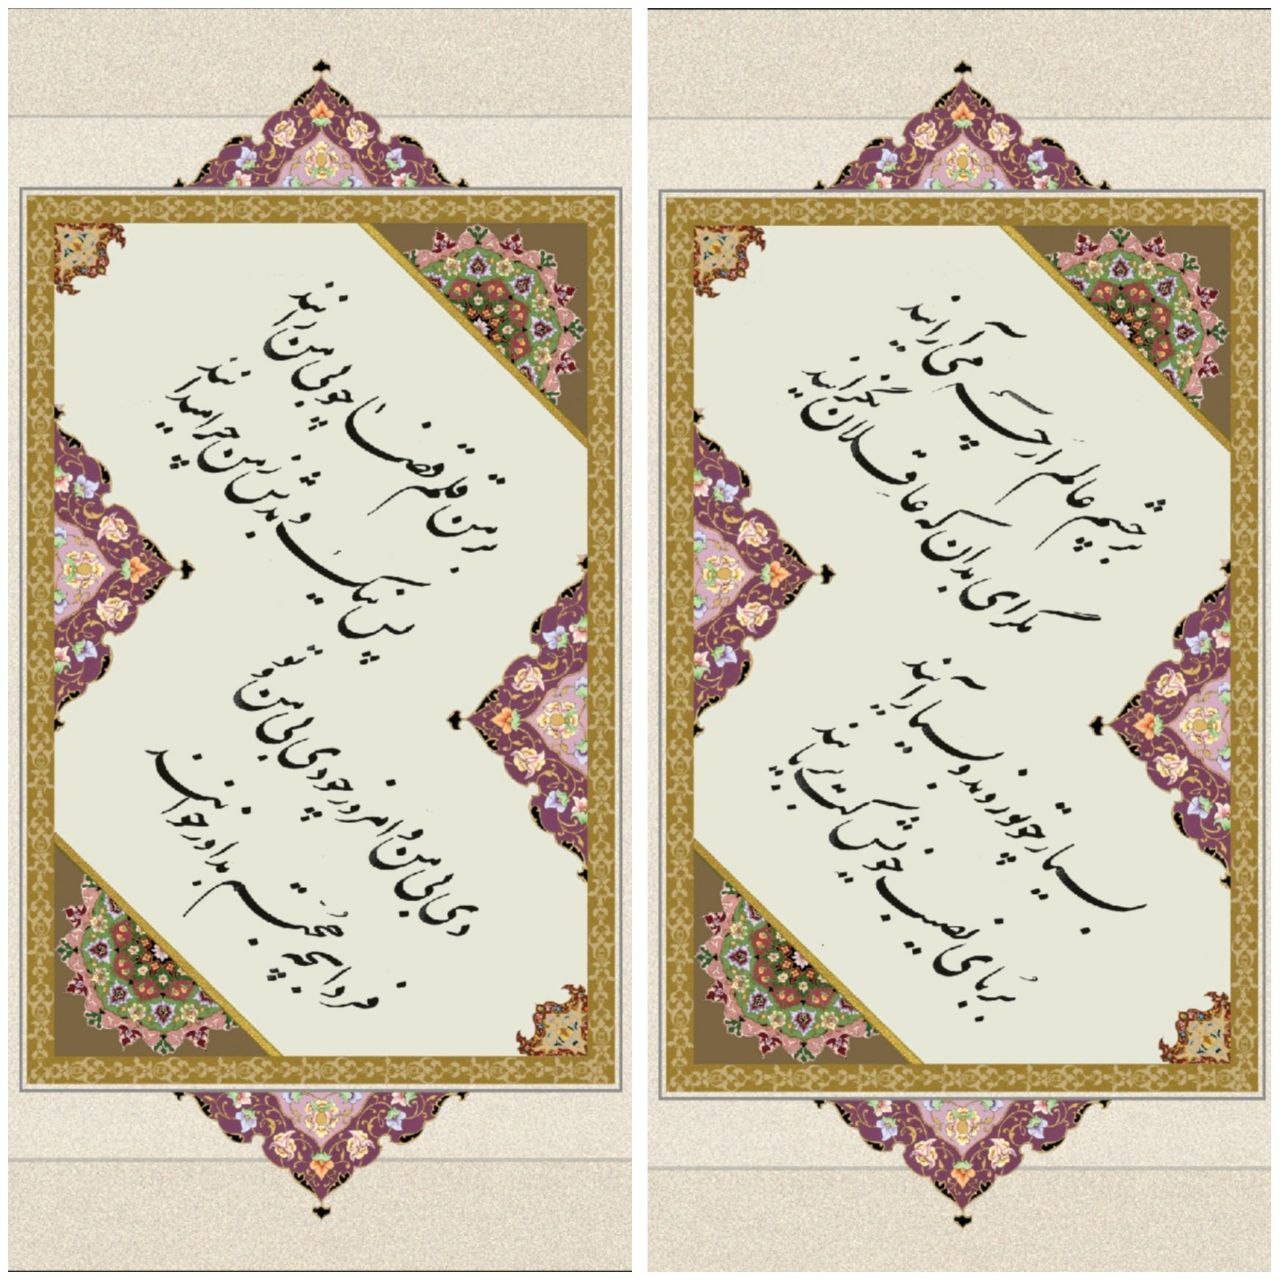 بر چشم تو عالم ارچه می آرایند
مگرای بدان که عاقلان نگرایند
بسیار چو تو روند و بسیار آیند
بربای نصیب خویش کت بربایند
بر من قلم قضا چو بی من رانند
پس نیک و بدش ز من چرا میدانند
دی بی من و امروز چو دی بی من و تو
فردا بچه حُجّتم بداور خوانند